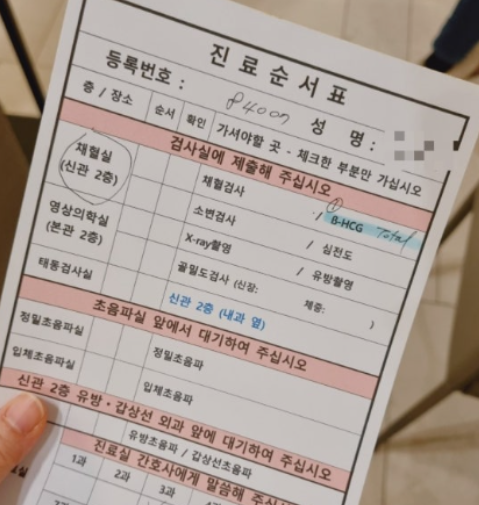 진료순서표
등록번호 : 84007 성 명 :
층 / 장소 순서 확인 가셔야할 곳 - 체크한 부분만 가십시오
검사실에 제출해 주십시오
채혈실 (신관 2층) 채혈검사 / ① B-HCG Total
소변검사 / 심전도
영상의학실 (본관 2층) X-ray촬영 / 유방촬영
골밀도검사 (신장: 체중: )
태동검사실 신관 2층 (내과 옆)
초음파실 앞에서 대기하여 주십시오
정밀초음파실 정밀초음파
입체초음파실 입체초음파
신관 2층 유방·갑상선 외과 앞에 대기하여 주십시오
유방초음파 / 갑상선초음파
진료실 간호사에게 말씀해 주십시오
1과 2과 3과